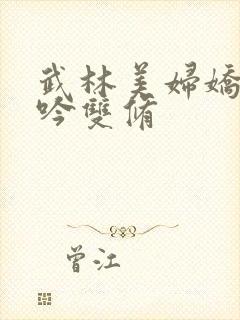 武林美婦嬌
吟雙脩
曾江